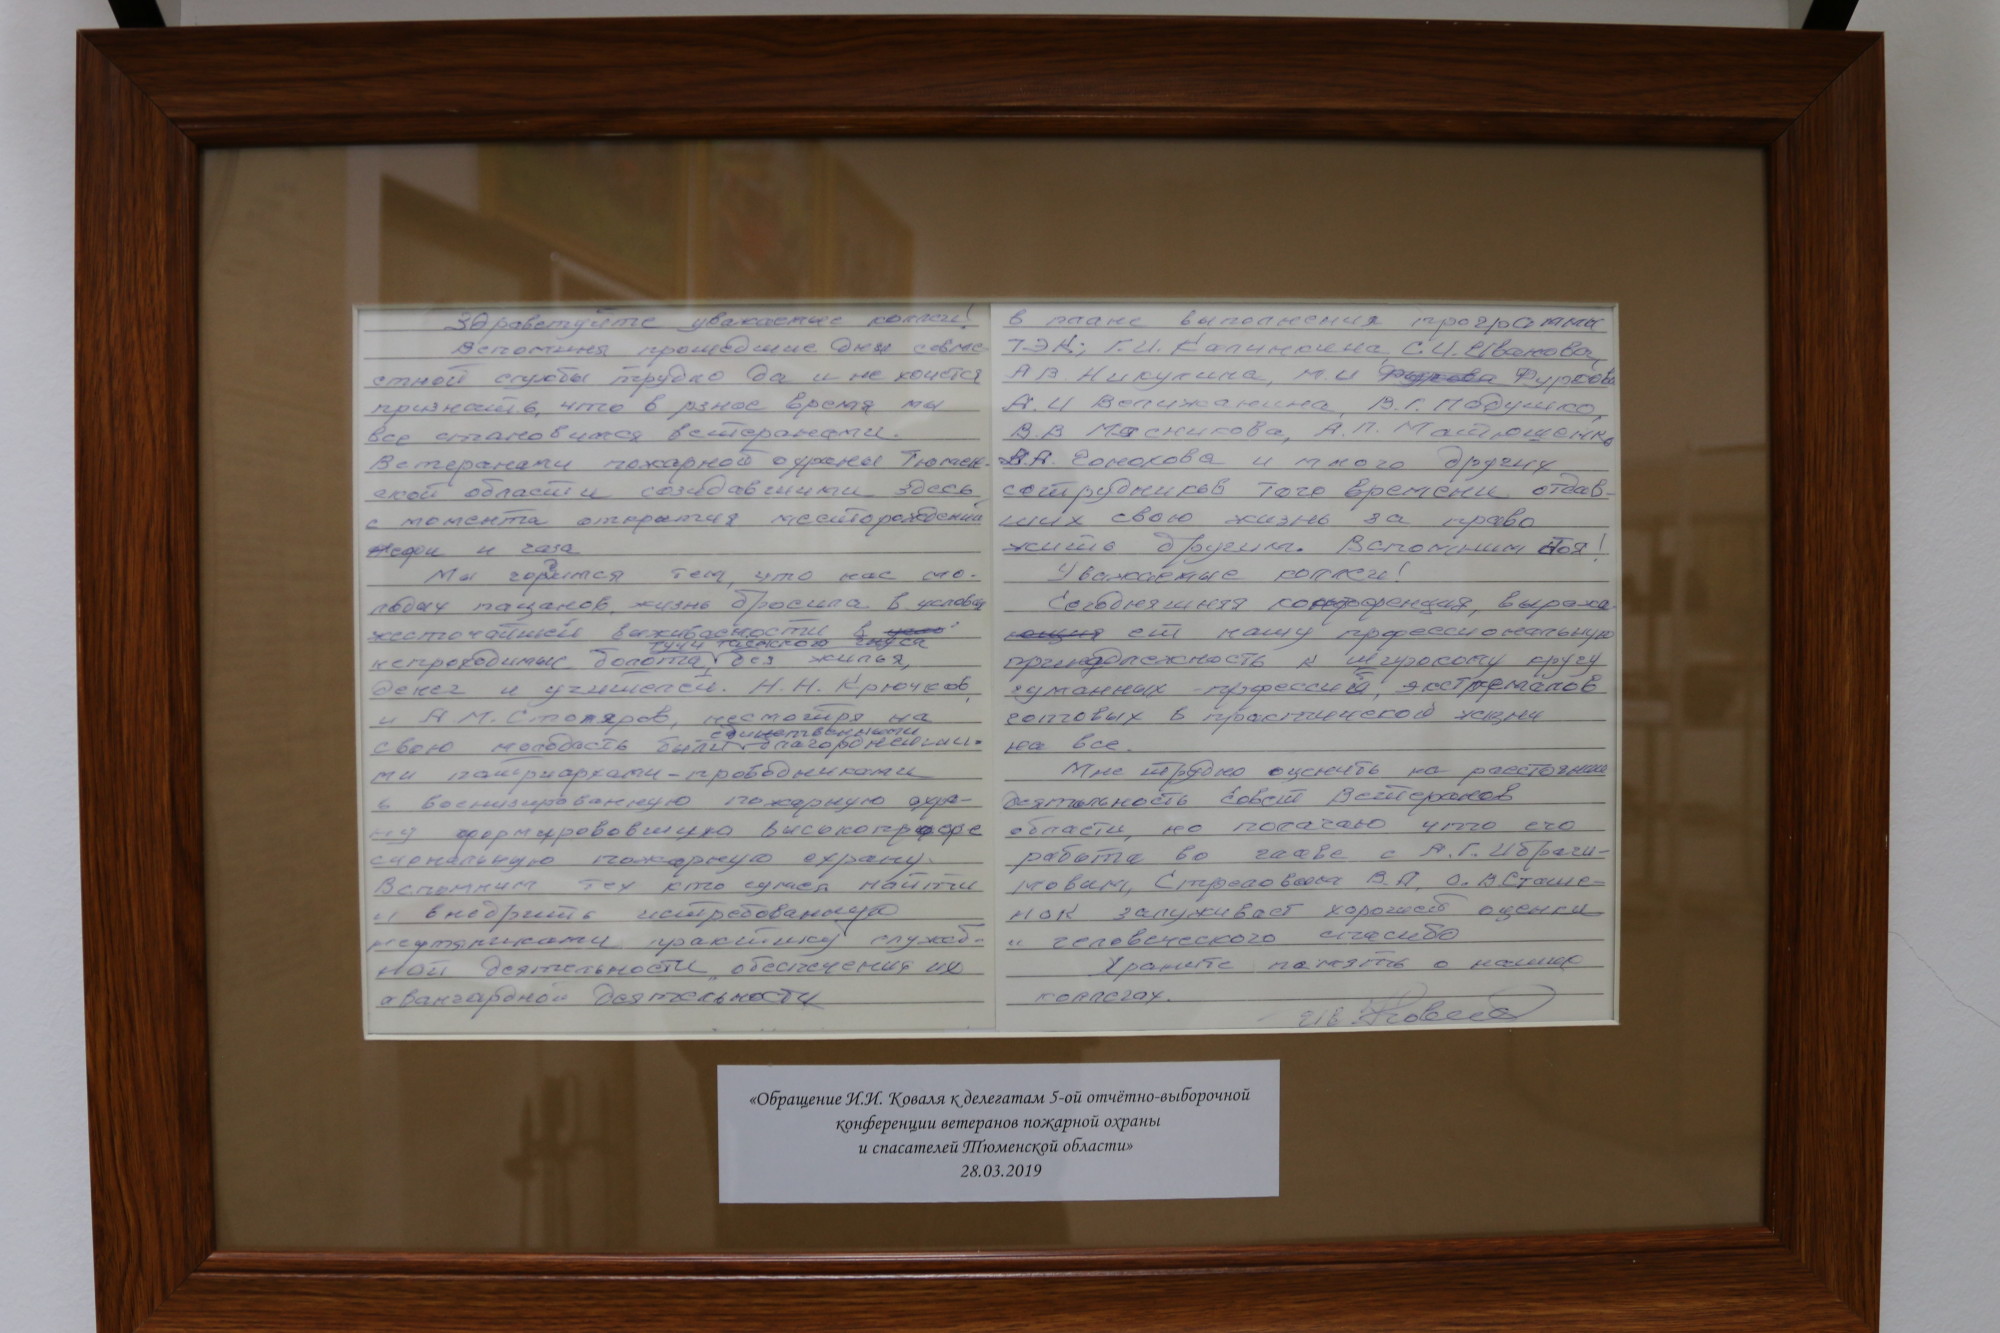 Здравствуйте уважаемые коллеги!
Вспоминя прошедшие дни совме
стной службы трудно да и не хочется
признать, что в рзное время мы
все становимся ветеранами.
Ветеранами пожарной охраны Тюмен-
ской области созидавшими здесь,
с момента открытия месторождений
нефи и газа
Мы гордимся тем, что нас мо-
лодых пацанов, жизнь бросила в условия
жесточайшей выживаемости в
тучи таежного гнуса
непроходимые болота, без жилья,
денег и учителей. Н.Н. Крючков,
и А.М. Столяров, несмотря на
единственными
свою молодость были благороднейши-
ми патриархами-проводниками
в военизированную пожарную охра-
ну формировавшую высокопрофе
сиональную пожарную охрану.
Вспомним тех кто сумел найти
и внедрить истребованную
нефтяниками практику служеб-
ной деятельности обеспечения их
авангардной деятельности
в плане выполнения программы
ТЭК; Г.И. Калинкина, С.И. Иванова,
А В. Никулина, М. И Фуркова
А. И Велижанина, В.Г. Подушко,
В.В Мясникова, А.П. Матюшенко
В.А. Гомохова и много других
сотрудников того времени отдав-
ших свою жизнь за право
жить другим. Вспомним стоя!
Уважаемые коллеги!
Сегодняшняя конференция, выража
ет нашу профессиональную
принадлежность к широкому кругу
гуманных профессий, экстремалов
готовых в практической жизни
на все.
Мне трудно оценить на расстоянии
деятельность Совет Ветеранов
области, но полагаю что его
работа во главе с А.Г. Ибраги-
мовым, Стреловым В.П, О.В Сташе-
нок заслуживает хорошей оценки
и человеческого спасибо
Храните память о наших
коллегах.
«Обращение И.И. Коваля к делегатам 5-ой отчётно-выборочной
конференции ветеранов пожарной охраны
и спасателей Тюменской области»
28.03.2019